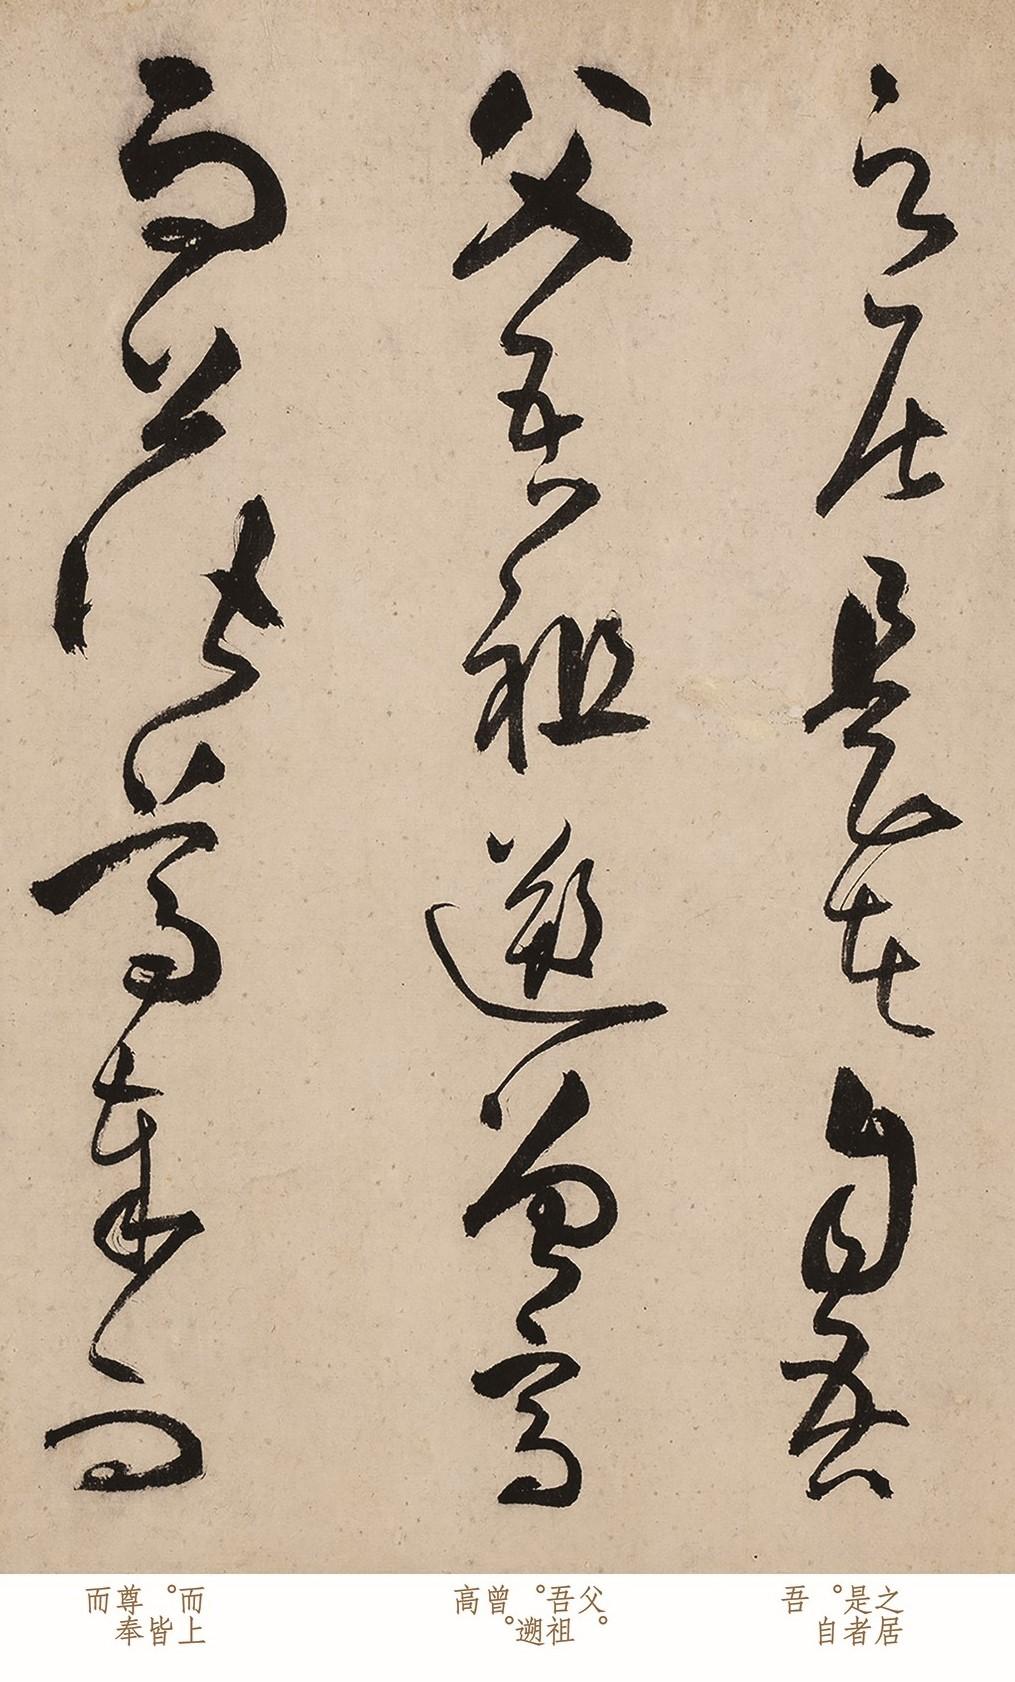 之居是者自吾
父吾祖遡曾高
而上皆尊奉而
之居是者。自吾
父。吾祖。遡曾。高
而上。皆尊奉而